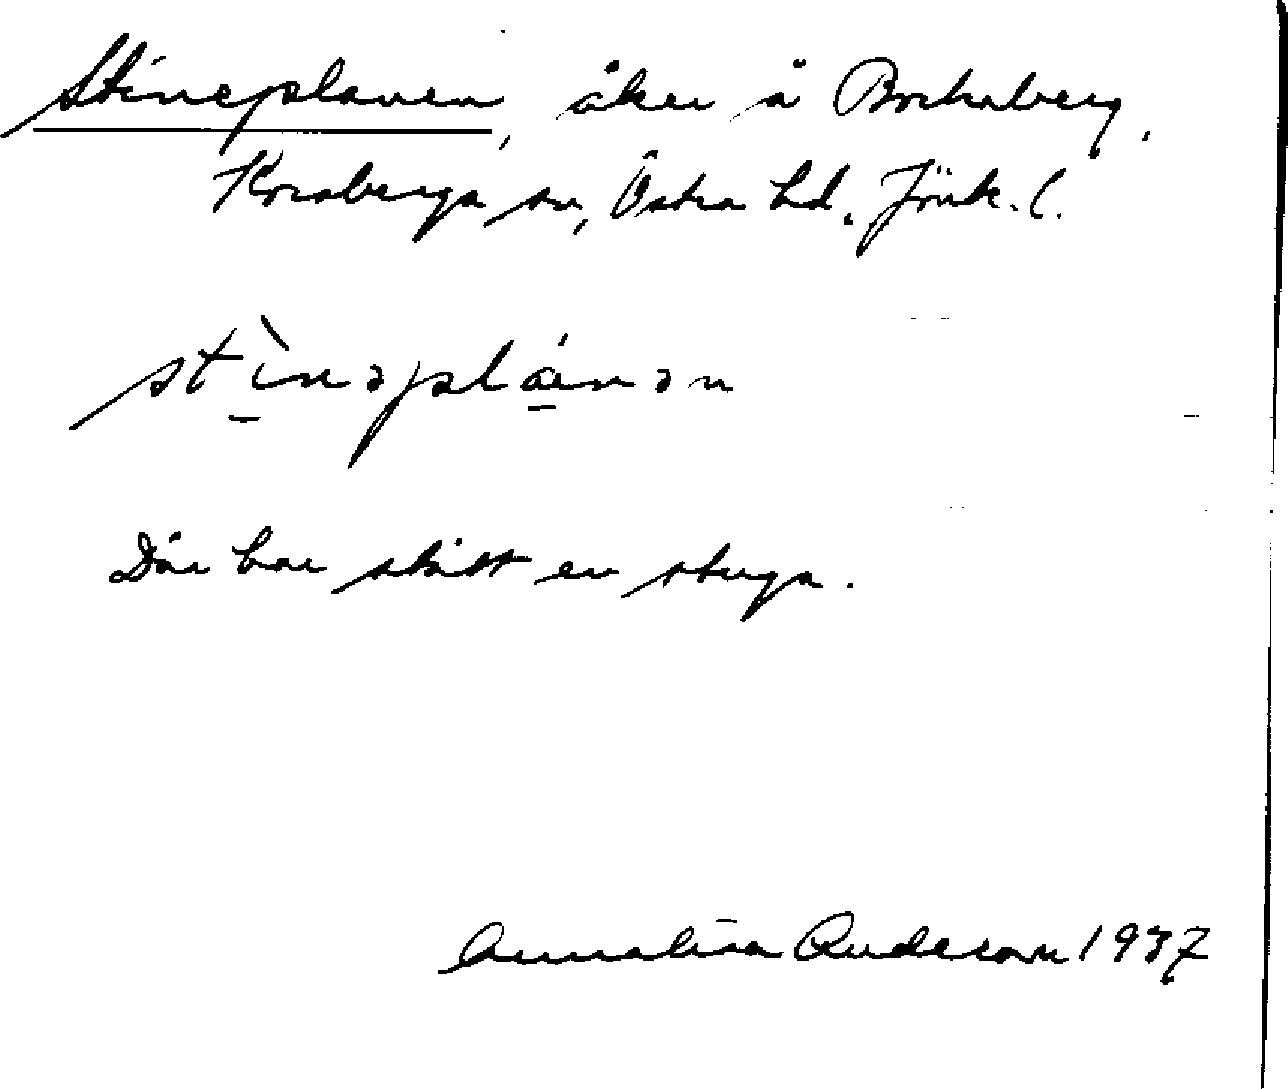 Stineplanen, åker å Bockaberg,
Korsberga sn, Östra hd, Jönk. l.
stìnəplánən
Där har stått en stuga.
Annalisa Anderson 1937